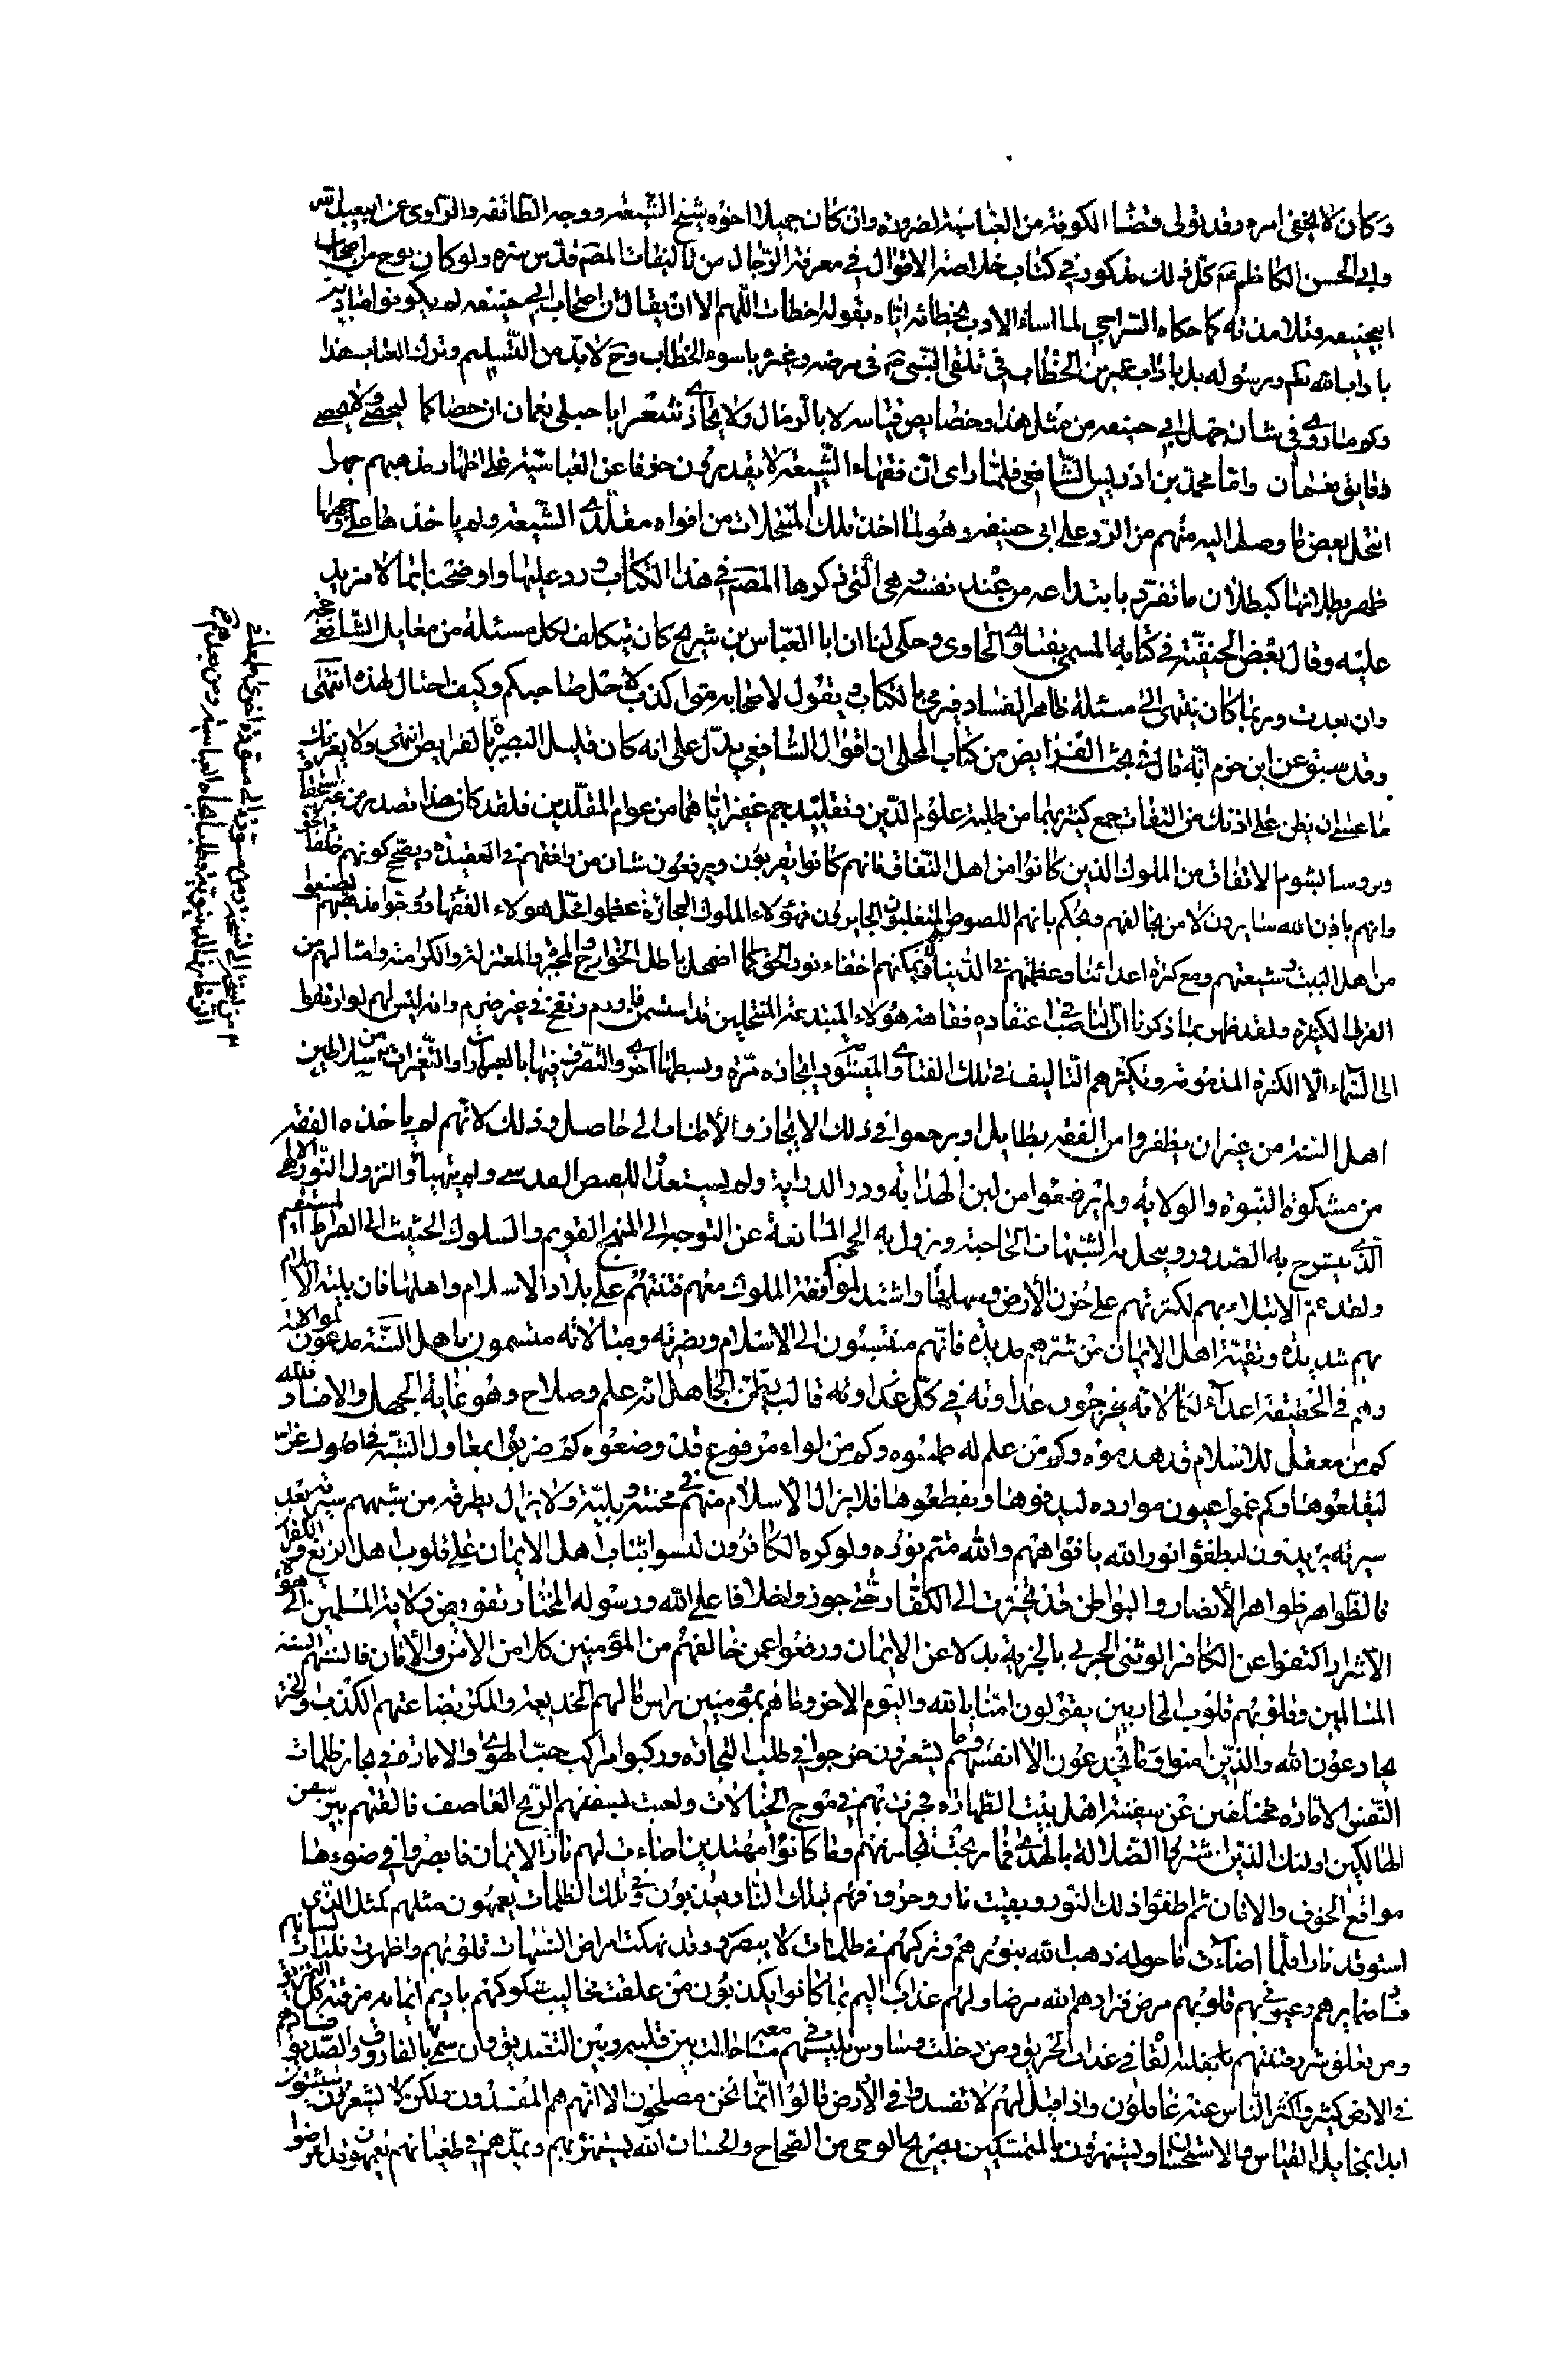 وكان لا يخفى امره وقد تولى قضاء الكوفة من العباسية لضرورة وان كان جميلا اخوه شيخ الشيعة ووجه الطائفة والراوى عن ابيعبدالله
وابى الحسن الكاظم عم كل ذلك مذكور فى كتاب خلاصة الاقوال فى معرفة الرجال من تاليفات المصم قدس سره ولو كان نوح من اصحاب
ابيحنيفه وتلامذته كما حكاه السراجى لما اساء الادب بخطائه اياه بقوله اخطات اللهم الا ان يقال ان اصحاب ابى حنيفه لم يكونوا متادبين
باداب الله تعم ورسوله بل باداب عمر بن الخطاب فى تلقى النبى صم فى مرضه وغيره باسوء الخطاب وح لا بد من التسليم وترك العتاب هذا
وكم ما روى فى شان جهل ابى حنيفه من مثل هذا وخصايص قياسه لا بالرمال ولا يحاذ شعرا يا جبلى نعمان ان حصاكما ليحصى ولا يحصى
دقايق نعمان واما محمد بن ادريس الشافعى فلما راى ان فقهاء الشيعة لا يقدرون خوفا عن العباسية على اظهار مذهبهم جهرا
انتحل بعض ما وصل اليه منهم من الرد على ابى حنيفه وهو لما اخذ تلك المنتحلات من افواه مقلدى الشيعة ولم ياخذها على وجهها
ظهر بطلانها كبطلان ما تفرد بابتداعه من عند نفسه وهى التى ذكرها المصم فى هذا الكتاب ورد عليها واوضحنا بما لا مزيد
عليه وقال بعض الحنفية فى كتابه المسمى بفتاوى الحاوى وحكى لنا ان ابا العباس بن شريح كان يتكلف لكل مسئلة من مغايل الشافعى مخرجه
وان بعدت وربما كان ينتهى الى مسئلة ظاهر الفساد فيرمى بالكتاب ويقول لاصحابه متى اكذب لاجل صاحبكم وكيف احتال لهذه انتهى
وقد سبق عن ابن حزم انه قال فى بحث الفرايض من كتاب المحلى ان اقوال الشافعى يدل على انه كان قليل البصيرة بالفرايض انتهى ولا يغرنك
ما عسى ان يظن على اذنك من التفات جمع كثير بهما من طلبة علوم الدين وتقليد جم غفير اياهما من عوام المقلدين فلقد كان هذا تصدر من غير استحقاق
وبروسا بشوم الاتفاق من الملوك الذين كانوا من اهل النفاق فانهم كانوا يقربون ويرفعون شان من وافقهم فى العقيدة ويصحح كونهم خلفاء الحق
وانهم باذن الله سايرون لا من يخالفهم ويحكم بانهم اللصوص المتغلبون الجايرون فهؤلاء الملوك الجائرة عظموا محل هولاء الفقهاء وروجوا مذهبهم ليصنعوا
من اهل البيت وشيعتهم ومع كثرة اعدائنا وعظمتهم فى الدنيا لم يمكنهم اخفاء نور الحق كما اضمحل باطل الخوارج والمجبرة والمعتزلة والكرامية وامثالهم من
الفرق الكثيرة ولقد ظهر بما ذكرنا ان الناصب اعتقاده فقاهة هؤلاء المبتدعة المنتحلين قد استسمن ذا ورم ونفخ فى غير ضرم وانه ليس لهم لو ارتقوا
الى السماء الا الكثرة المذمومة وتكثيرهم التاليف فى تلك الفتاوى والمسودة ايجازه مرة وبسطها اخرى والتصرف فيها بالعبارات والتغيرات من سلاطين
اهل السنة من غير ان يظفروا من الفقه بطايل او يرجعوا فى ذلك الايجاز والاطناب الى حاصل وذلك لانهم لم ياخذه الفقه
من مشكوة النبوة والولاية ولم يرضعوا من لبن الهداية ودر الدراية ولم يستعدوا للفيض القدسى ولم يتهيأوا لنزول النور الالهى
الذى يشرح به الصدور ويحل به الشبهات الحاجبة ويزول به الحجب المانعة عن التوجه الى المنهج القويم والسلوك الحثيث الى الصراط المستقيم
ولقد عم الابتلاء بهم لكثرتهم على حزن الارض وسهلها واشتد لموافقة الملوك معهم فتنتهم على بلاد الاسلام واهلها فان بلية الاسلام
بهم شديدة وتقية اهل الايمان من شرهم مديدة فانهم منتسبون الى الاسلام ونصرته ومبالاته متسمون باهل السنة مدعون لموالاته
وهم فى الحقيقة اعداء لمبالاته يخرجون عداوته فى كل عداوته قالب يظن الجاهل انه علم وصلاح وهو غاية الجهل والافساد فلله
كم من معقل للاسلام قد هدموه وكم من علم له طمسوه وكم من لواء مرفوع قد وضعوه كم ضربوا بمعاول الشبه فى اصول غراسه
ليقلعوها وكم عموا عيون موارده ليدفنوها ويقطعوها فلا يزال الاسلام منهم فى محنة وبلية ولا يزال يطرقه من شبههم سرية بعد
سرية يريدون ليطفؤا نور الله بافواههم والله متم نوره ولو كره الكافرون لبسوا ثياب اهل الايمان على قلوب اهل الزيغ والكفران
فالظواهر ظواهر الانصار والبواطن قد تحيزت الى الكفار حتى جوزوا خلافا على الله ورسوله المختار تفويض ولاية المسلمين الى هؤلاء
الاشرار اكتفوا عن الكافر الوثنى الحربى بالجزية بدلا عن الايمان ورفعوا عمن خالفهم من المؤمنين كلا من الامن والامان فالسنتهم السنة
المسالمين وقلوبهم قلوب المحاربين يقولون امنا بالله واليوم الاخر وما هم بمؤمنين براس مالهم الخديعة والمكر بضاعتهم الكذب والختر
يخادعون الله والذين امنوا وما يخدعون الا انفسهم وما يشعرون خرجوا فى طلب التجارة وركبوا مراكب حب الهوى والامارة فى بحار ظلمات
النفس الامارة مختلفين عن سفينة اهل بيت الطهارة فجرت بهم فى موج الخيالات ولعبت بسفنهم الريح العاصف فالقتهم بين سفن
الهالكين اولئك الذين اشتروا الضلالة بالهدى فما ربحت تجارتهم وما كانوا مهتدين اضاءت لهم نار الايمان فابصروا فى ضوءها
مواقع الخوف والامان ثم طفؤا ذلك النور وبقيت نار وحرق فهم بتلك النار يعذبون وفى تلك الظلمات يعمهون مثلهم كمثل الذى
استوقد نارا فلما اضاءت ما حوله ذهب الله بنورهم وتركهم فى ظلمات لا يبصرون وقد نهكت امراض الشبهات قلوبهم واظهرت فلتات لسانهم
فساد ضمايرهم وعيوبهم فى قلوبهم مرض فزادهم الله مرضا ولهم عذاب اليم بما كانوا يكذبون من علقت مخاليب شكوكهم باديم ايمانه مزقته كل التمزيق
ومن تعلق شرر فتنتهم بقلبه القاه فى عذاب الحريق ومن دخلت وساوس تلبيسهم فى مسامعه حالت بين قلبه وبين التصديق وان سمى بالفاروق والصديق فسادهم
فى الارض كثير واكثر الناس عنه غافلون واذا قيل لهم لا تفسدوا فى الارض قالوا انما نحن مصلحون الا انهم هم المفسدون ولكن لا يشعرون يستنون
ابدا بمخايل القياس والاستحسان ويستهزؤن بالمتمسكين بصريح الوحى من الصحاح والحسان الله يستهزئ بهم ويمدهم فى طغيانهم يعمهون قد اعرضوا